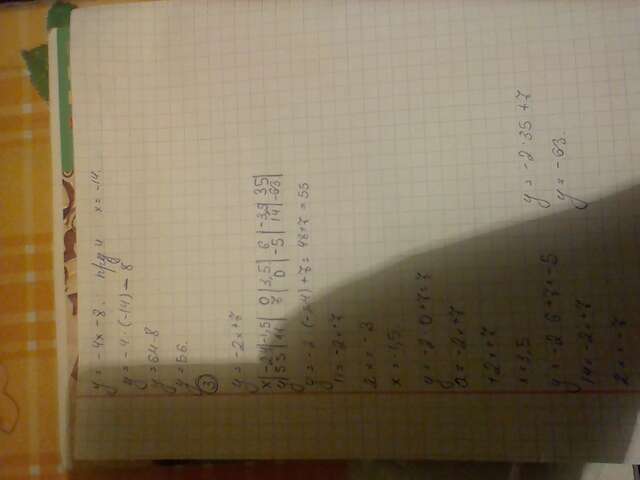 y = -4x - 8. при x = -14.
y = -4 · (-14) - 8
y = 64 - 8
y = 56.
③
y = -2x+7
x|-24|-1,5|0|3,5|6|-3,5|35|
y|55|11|7|0|-5|14|-63|
y = -2 · (-24) + 7 = 48+7 = 55
11 = -2x+7
2x = -3
x = -1,5
y = -2 · 0 + 7 = 7
0 = -2x+7
+2x = 7
x = 3,5
y = -2 · 6 + 7 = -5
14 = -2x+7
2x = -7
y = -2 · 35 + 7
y = -63.